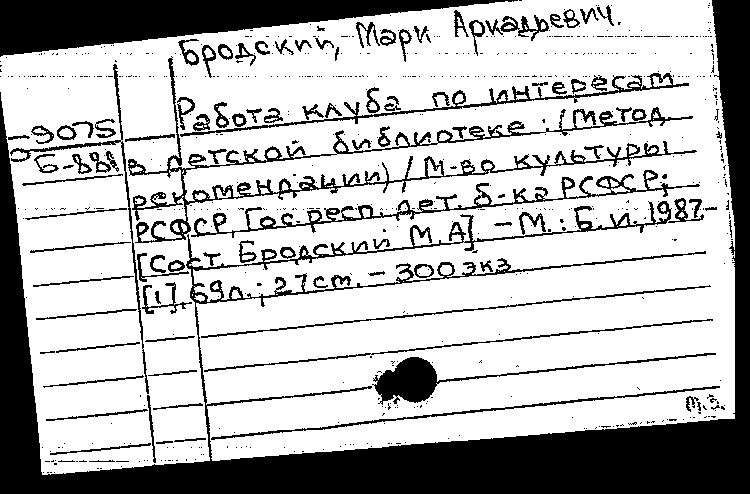 Бродский, Марк Аркадьевич.
Работа клуба по интересам
-9075
Б-88
в детской библиотеке: (Метод.
рекомендации) / М-во культуры
РСФСР, Гос. респ. дет. б-ка РСФСР;
[Сост. Бродский М.А]. - М.: Б.и., 1987.-
[1], 69л.; 27см. - 300экз